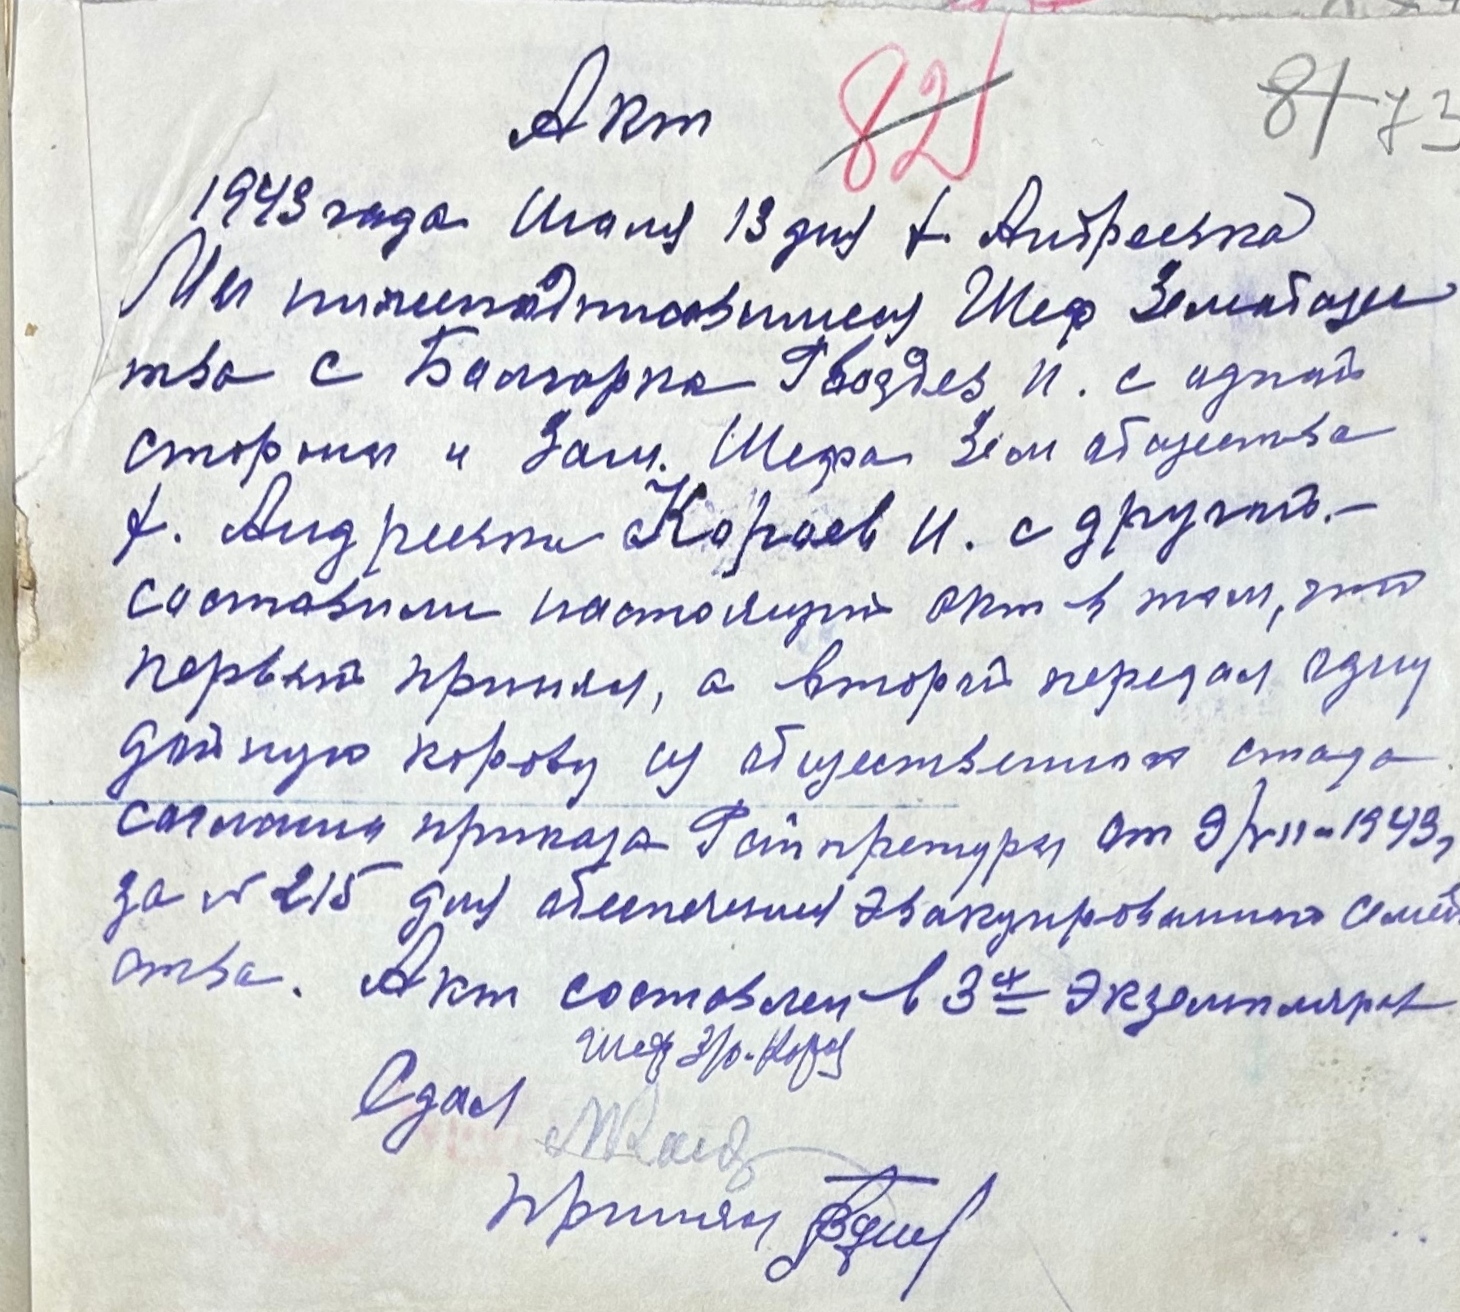 Акт 82 81 73
1943 года Июля 13 дня х. Андреевка
Мы нижеподписавшиеся Шеф Земобщес
тва с Болгарка Гвоздев И. с одной
стороны и Зам. Шефа Зем общества
х. Андреевка Караев И. с другой.-
составили настоящий акт в том, что
первый принял, а второй передал одну
дойную корову из общественного стада
согласно приказа Райпретуры от 9/VII-1943,
за № 215 для обеспечения эвакуированного семей
ства. Акт составлен в 3х экземплярах
Шеф
Сдал
принял